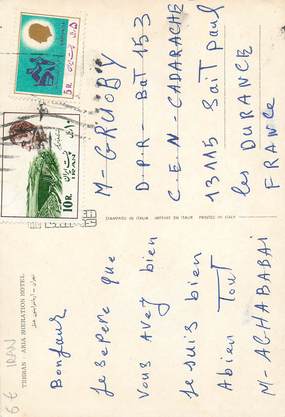 Bonjour
Je sepere que
Vous Avez bien
Je suis bien
Abien Tout
M- ACHABABAI
M- GRUOBY
D.P.R- Bat 153
C.E.N- CADARACHE
13115 Sait paul
les DURANCE
FRANCE
STAMPATO IN ITALIA IMPRIMÉ EN ITALIE PRINTED IN ITALY
TEHRAN - ARIA SHERATON HOTEL
6 € IRAN
5R.
10R
IRAN
پست ایران